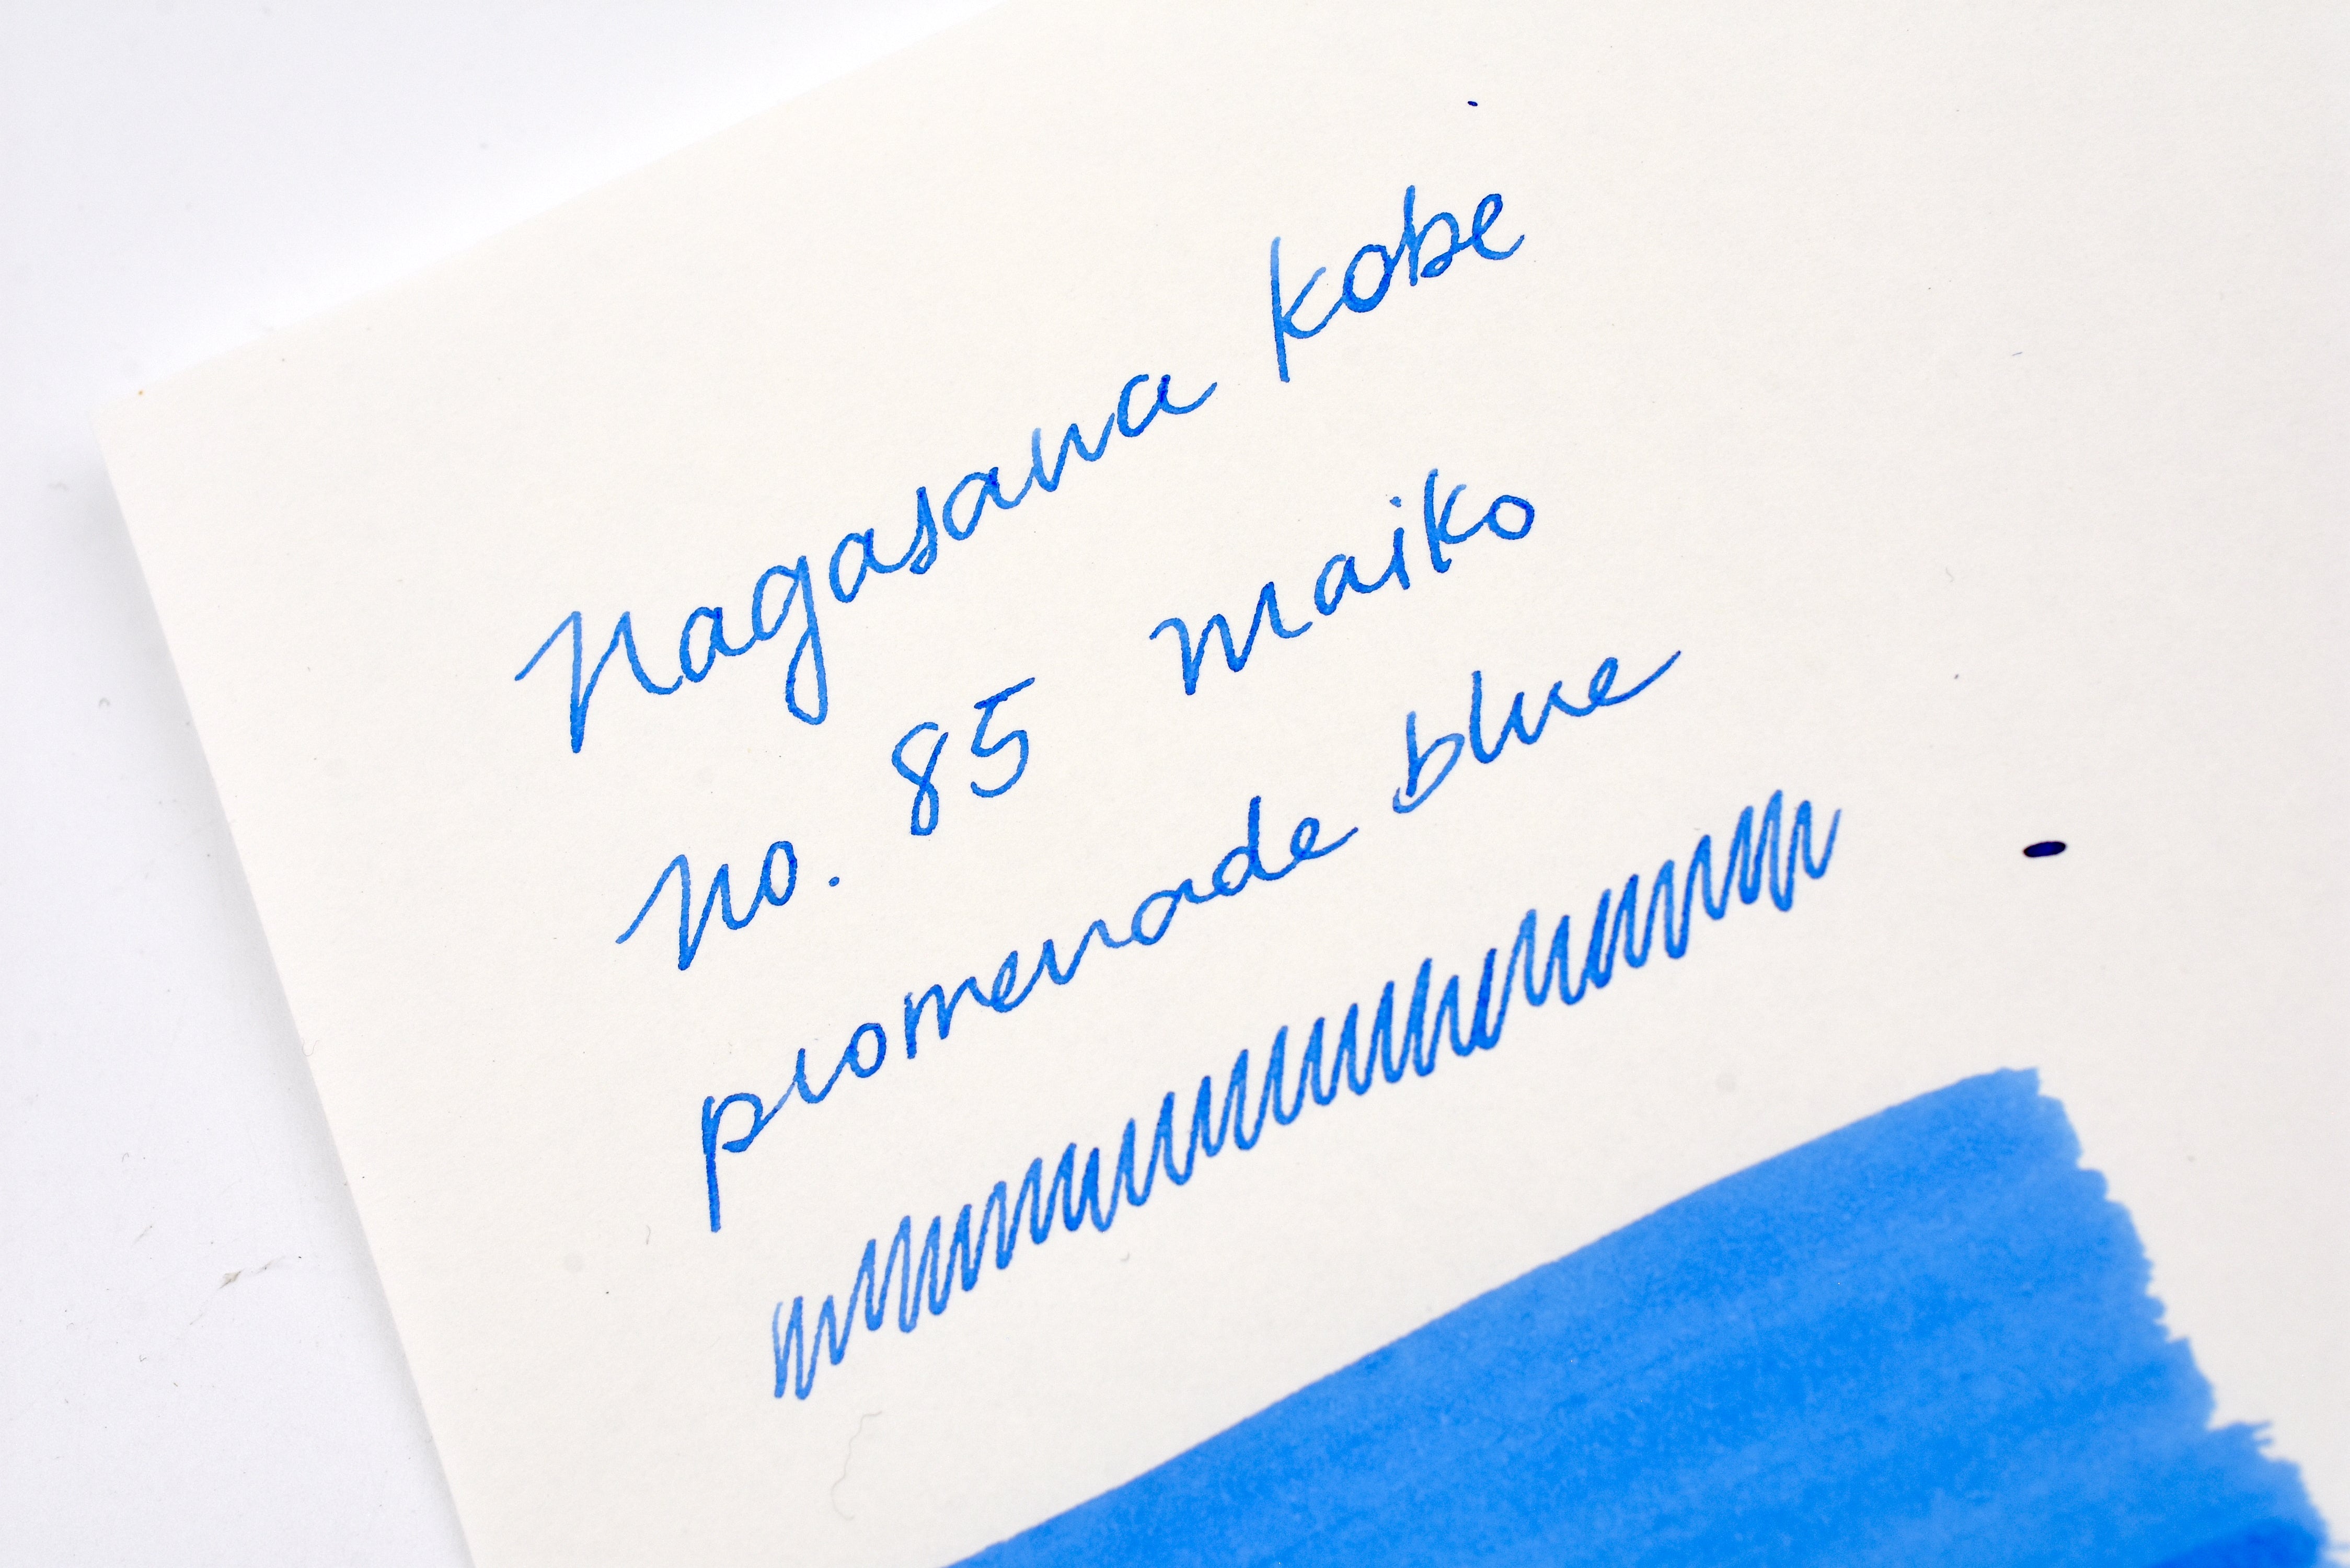 Nagasawa kobe
No. 85 maiko
promenade blue